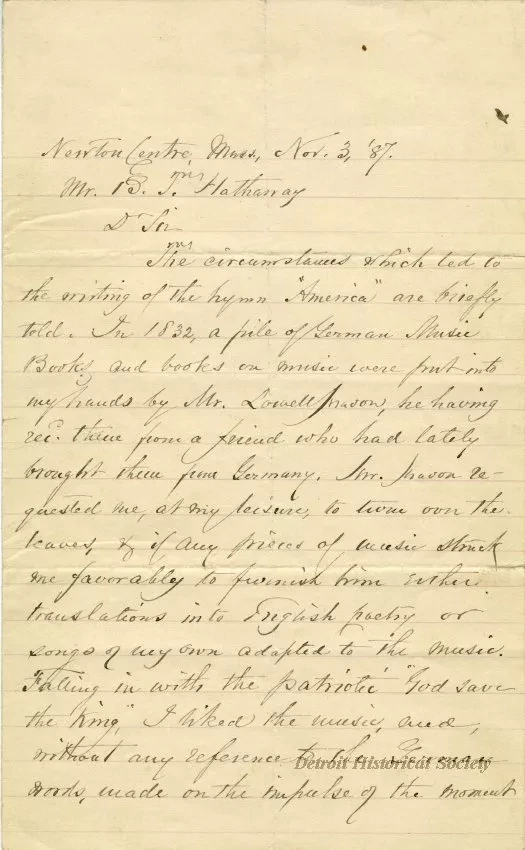 Newton Centre, Mass, Nov. 3, '87.
Mr. B. T. Hathaway
Dr Sir
The circumstances which led to
the writing of the hymn "America" are briefly
told. In 1832, a pile of German Music
Books and books on music were put into
my hands by Mr. Lowell Mason, he having
rec'd. them from a friend who had lately
brought them from Germany. Mr. Mason re-
quested me, at my leisure, to turn over the
leaves, & if any pieces of music struck
me favorably to furnish him either
translations into English poetry or
songs of my own adapted to the music.
Falling in with the patriotic "God save
the King," I liked the music, and,
without any reference to the German
words, made on the impulse of the moment
Detroit Historical Society